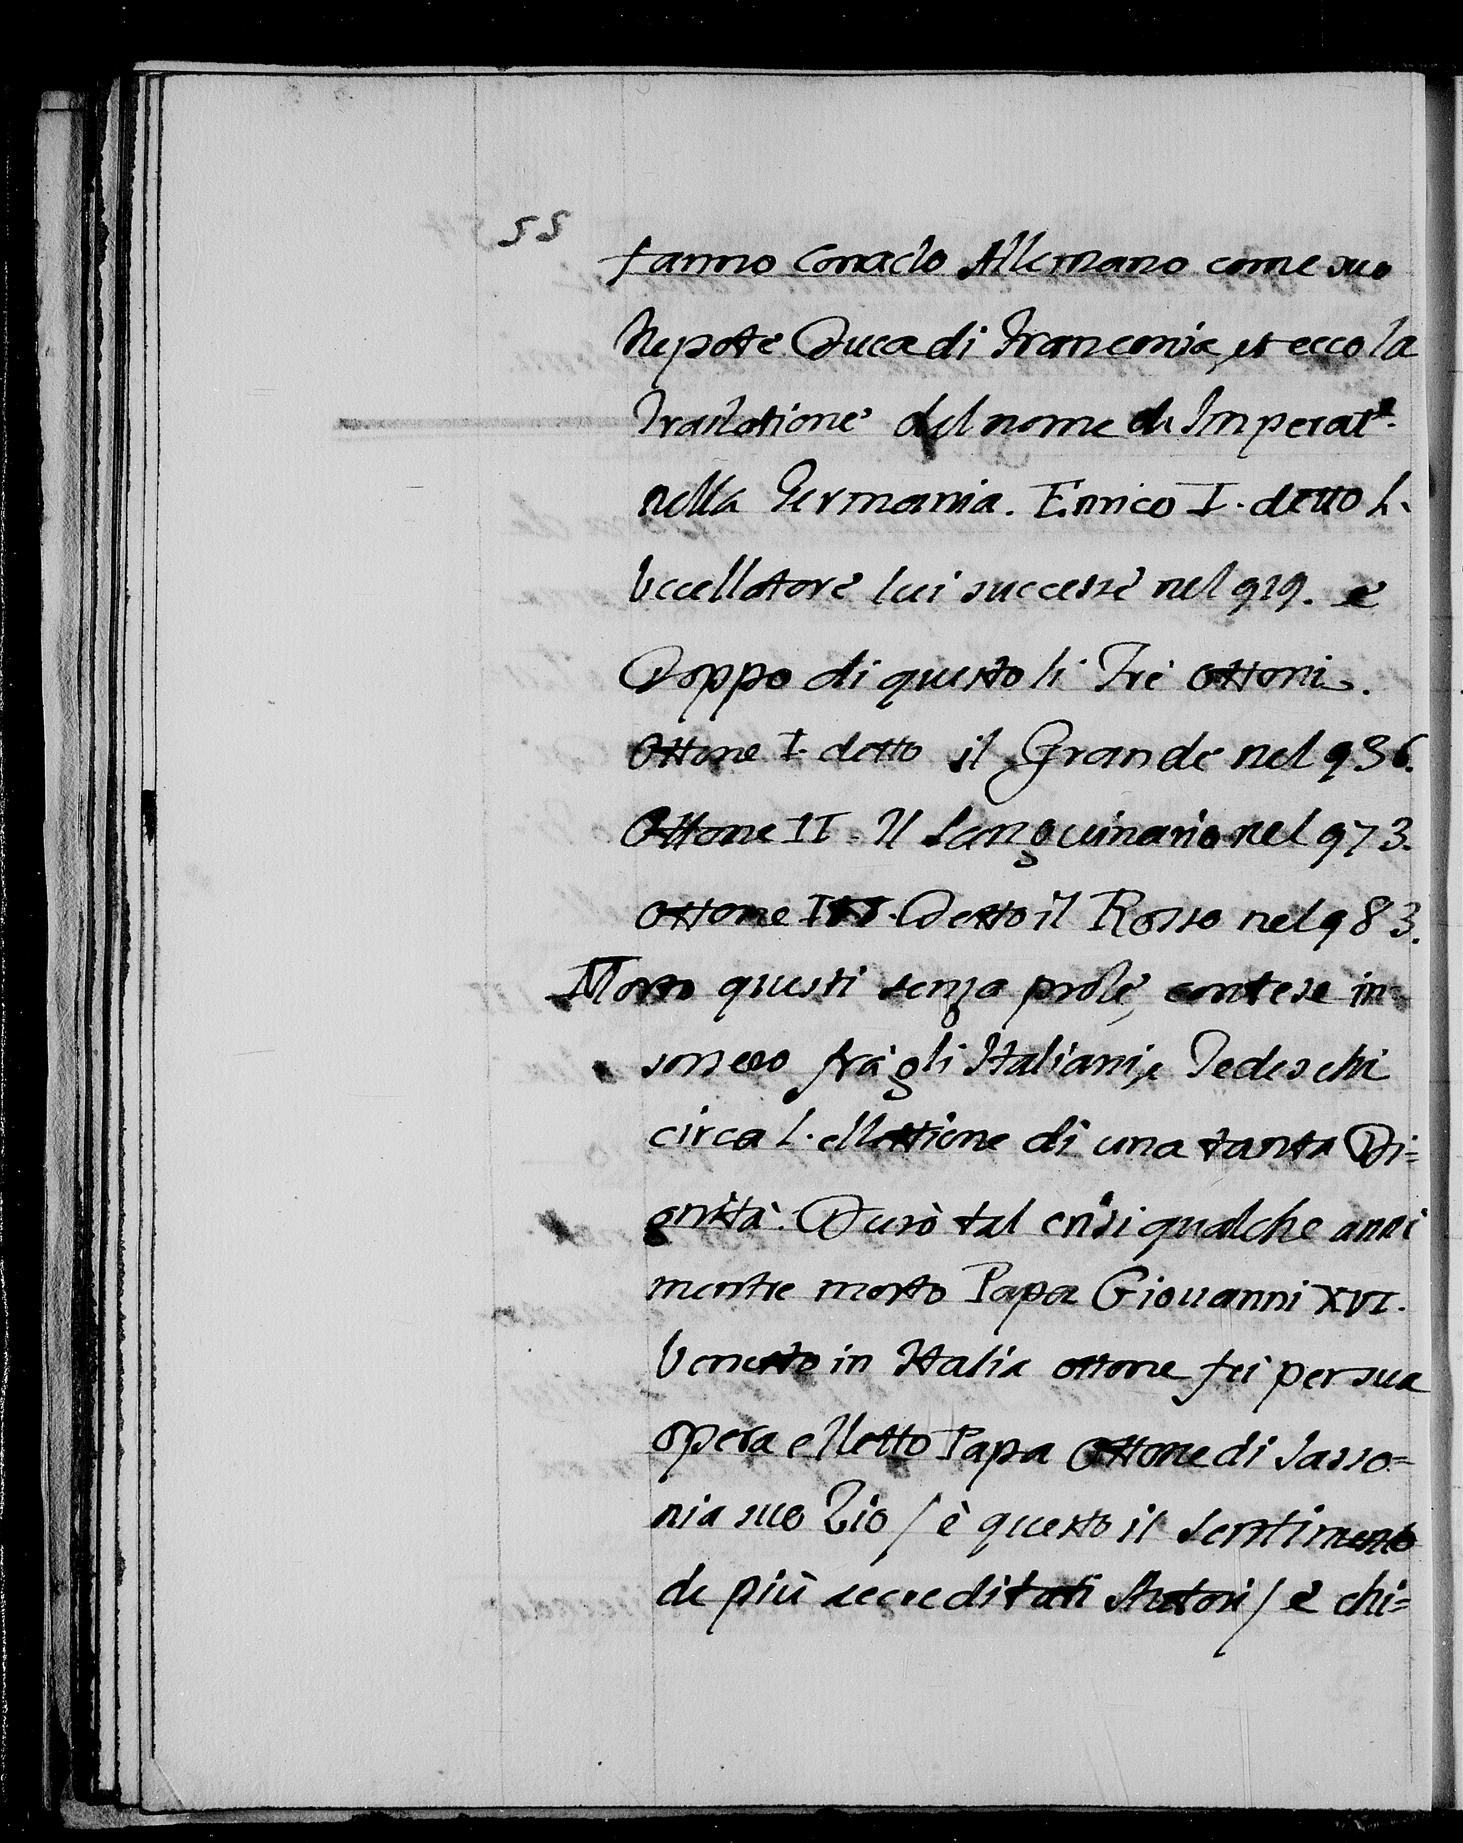 55
fanno Corrado Allemano come suo
Nepote Duca di Franconia, et ecco la
Traslatione del nome di Imperat.e
nella Germania. Enrico I. detto l.
Vccellatore lui successe nel 919. e
Doppo di questo li Trè Ottoni.
Ottone I. detto il Grande nel 936.
Ottone II. Il Sanguinario nel 973.
Ottone III. Detto il Rosso nel 983.
Morto questi senza prole, contese in=
sorsero frà gli Italiani, e Tedeschi
circa l. ellettione di una tanta Di=
gnità. Durò tal crisi qualche anni
mentre morto Papa Giouanni XVI.
Venuto in Italia Ottone fù per sua
opera elletto Papa Ottone di Sasso=
nia suo Zio / è questo il sentimento
de più accreditati Autori / e chi=